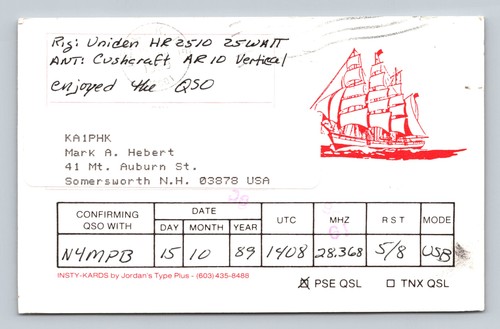 Rig: Uniden HR2510 25WATT
ANT: Cushcraft AR10 Vertical
enjoyed the QSO
KA1PHK
Mark A. Hebert
41 Mt. Auburn St.
Somersworth N.H. 03878 USA
CONFIRMING QSO WITH DATE UTC MHZ R S T MODE
DAY MONTH YEAR
N4MPB 15 10 89 1408 28.368 5/8 USB
INSTY-KARDS by Jordan's Type Plus - (603) 435-8488
☒ PSE QSL ☐ TNX QSL